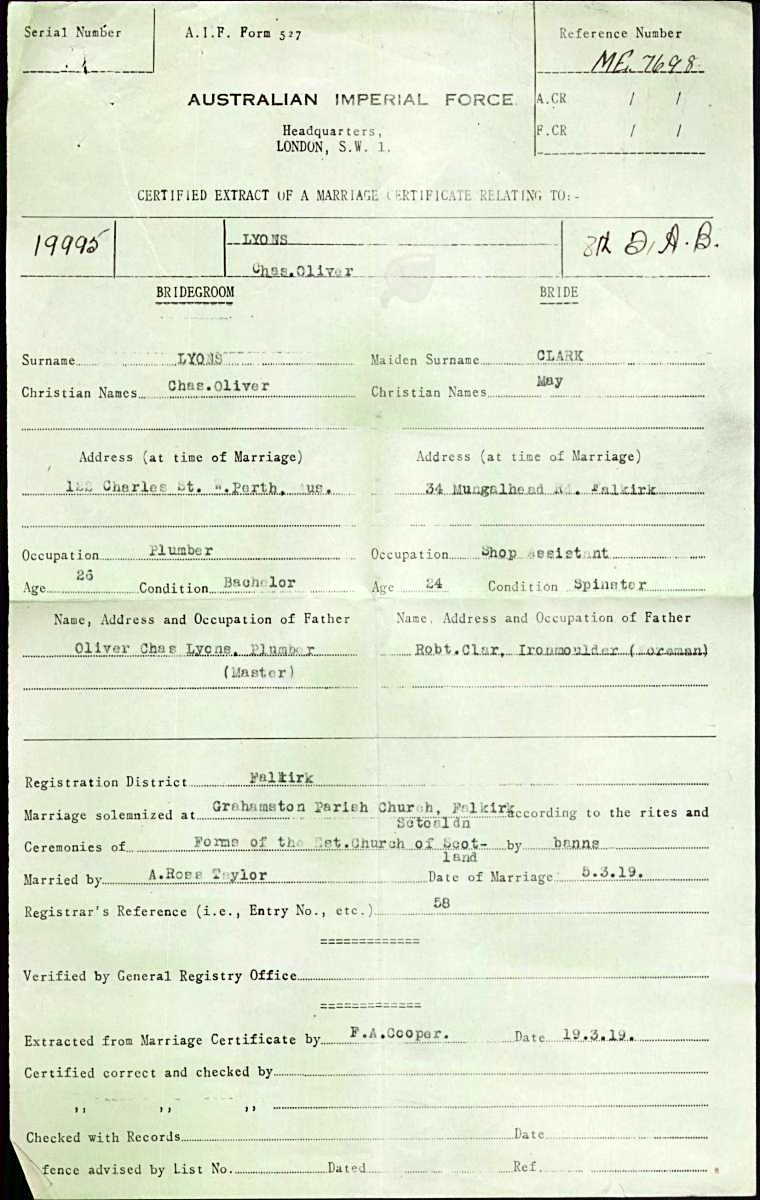 Serial Number A.I.F. Form 527 Reference Number
ME. 7698
AUSTRALIAN IMPERIAL FORCE. A.CR / /
Headquarters, F.CR / /
LONDON, S.W. 1.
CERTIFIED EXTRACT OF A MARRIAGE CERTIFICATE RELATING TO:-
19995 LYONS 8th D.A.B.
Chas.Oliver
BRIDEGROOM BRIDE
Surname LYONS Maiden Surname CLARK
Christian Names Chas.Oliver Christian Names May
Address (at time of Marriage) Address (at time of Marriage)
122 Charles St. W.Perth, Aus. 34 Mungalhead Rd. Falkirk
Occupation Plumber Occupation Shop assistant
Age 26 Condition Bachelor Age 24 Condition Spinster
Name, Address and Occupation of Father Name, Address and Occupation of Father
Oliver Chas Lyons, Plumber Robt.Clar, Ironmoulder (Foreman)
(Master)
Registration District Falkirk
Marriage solemnized at Grahamston Parish Church, Falkirk according to the rites and
Sctoaldn
Ceremonies of Forms of the Est.Church of Scot- by banns
land
Married by A.Ross Taylor Date of Marriage 5.3.19.
Registrar's Reference (i.e., Entry No., etc.) 58
=============
Verified by General Registry Office
=============
Extracted from Marriage Certificate by F.A.Cooper. Date 19.3.19.
Certified correct and checked by
,, ,, ,,
Checked with Records Date
fence advised by List No. Dated Ref.